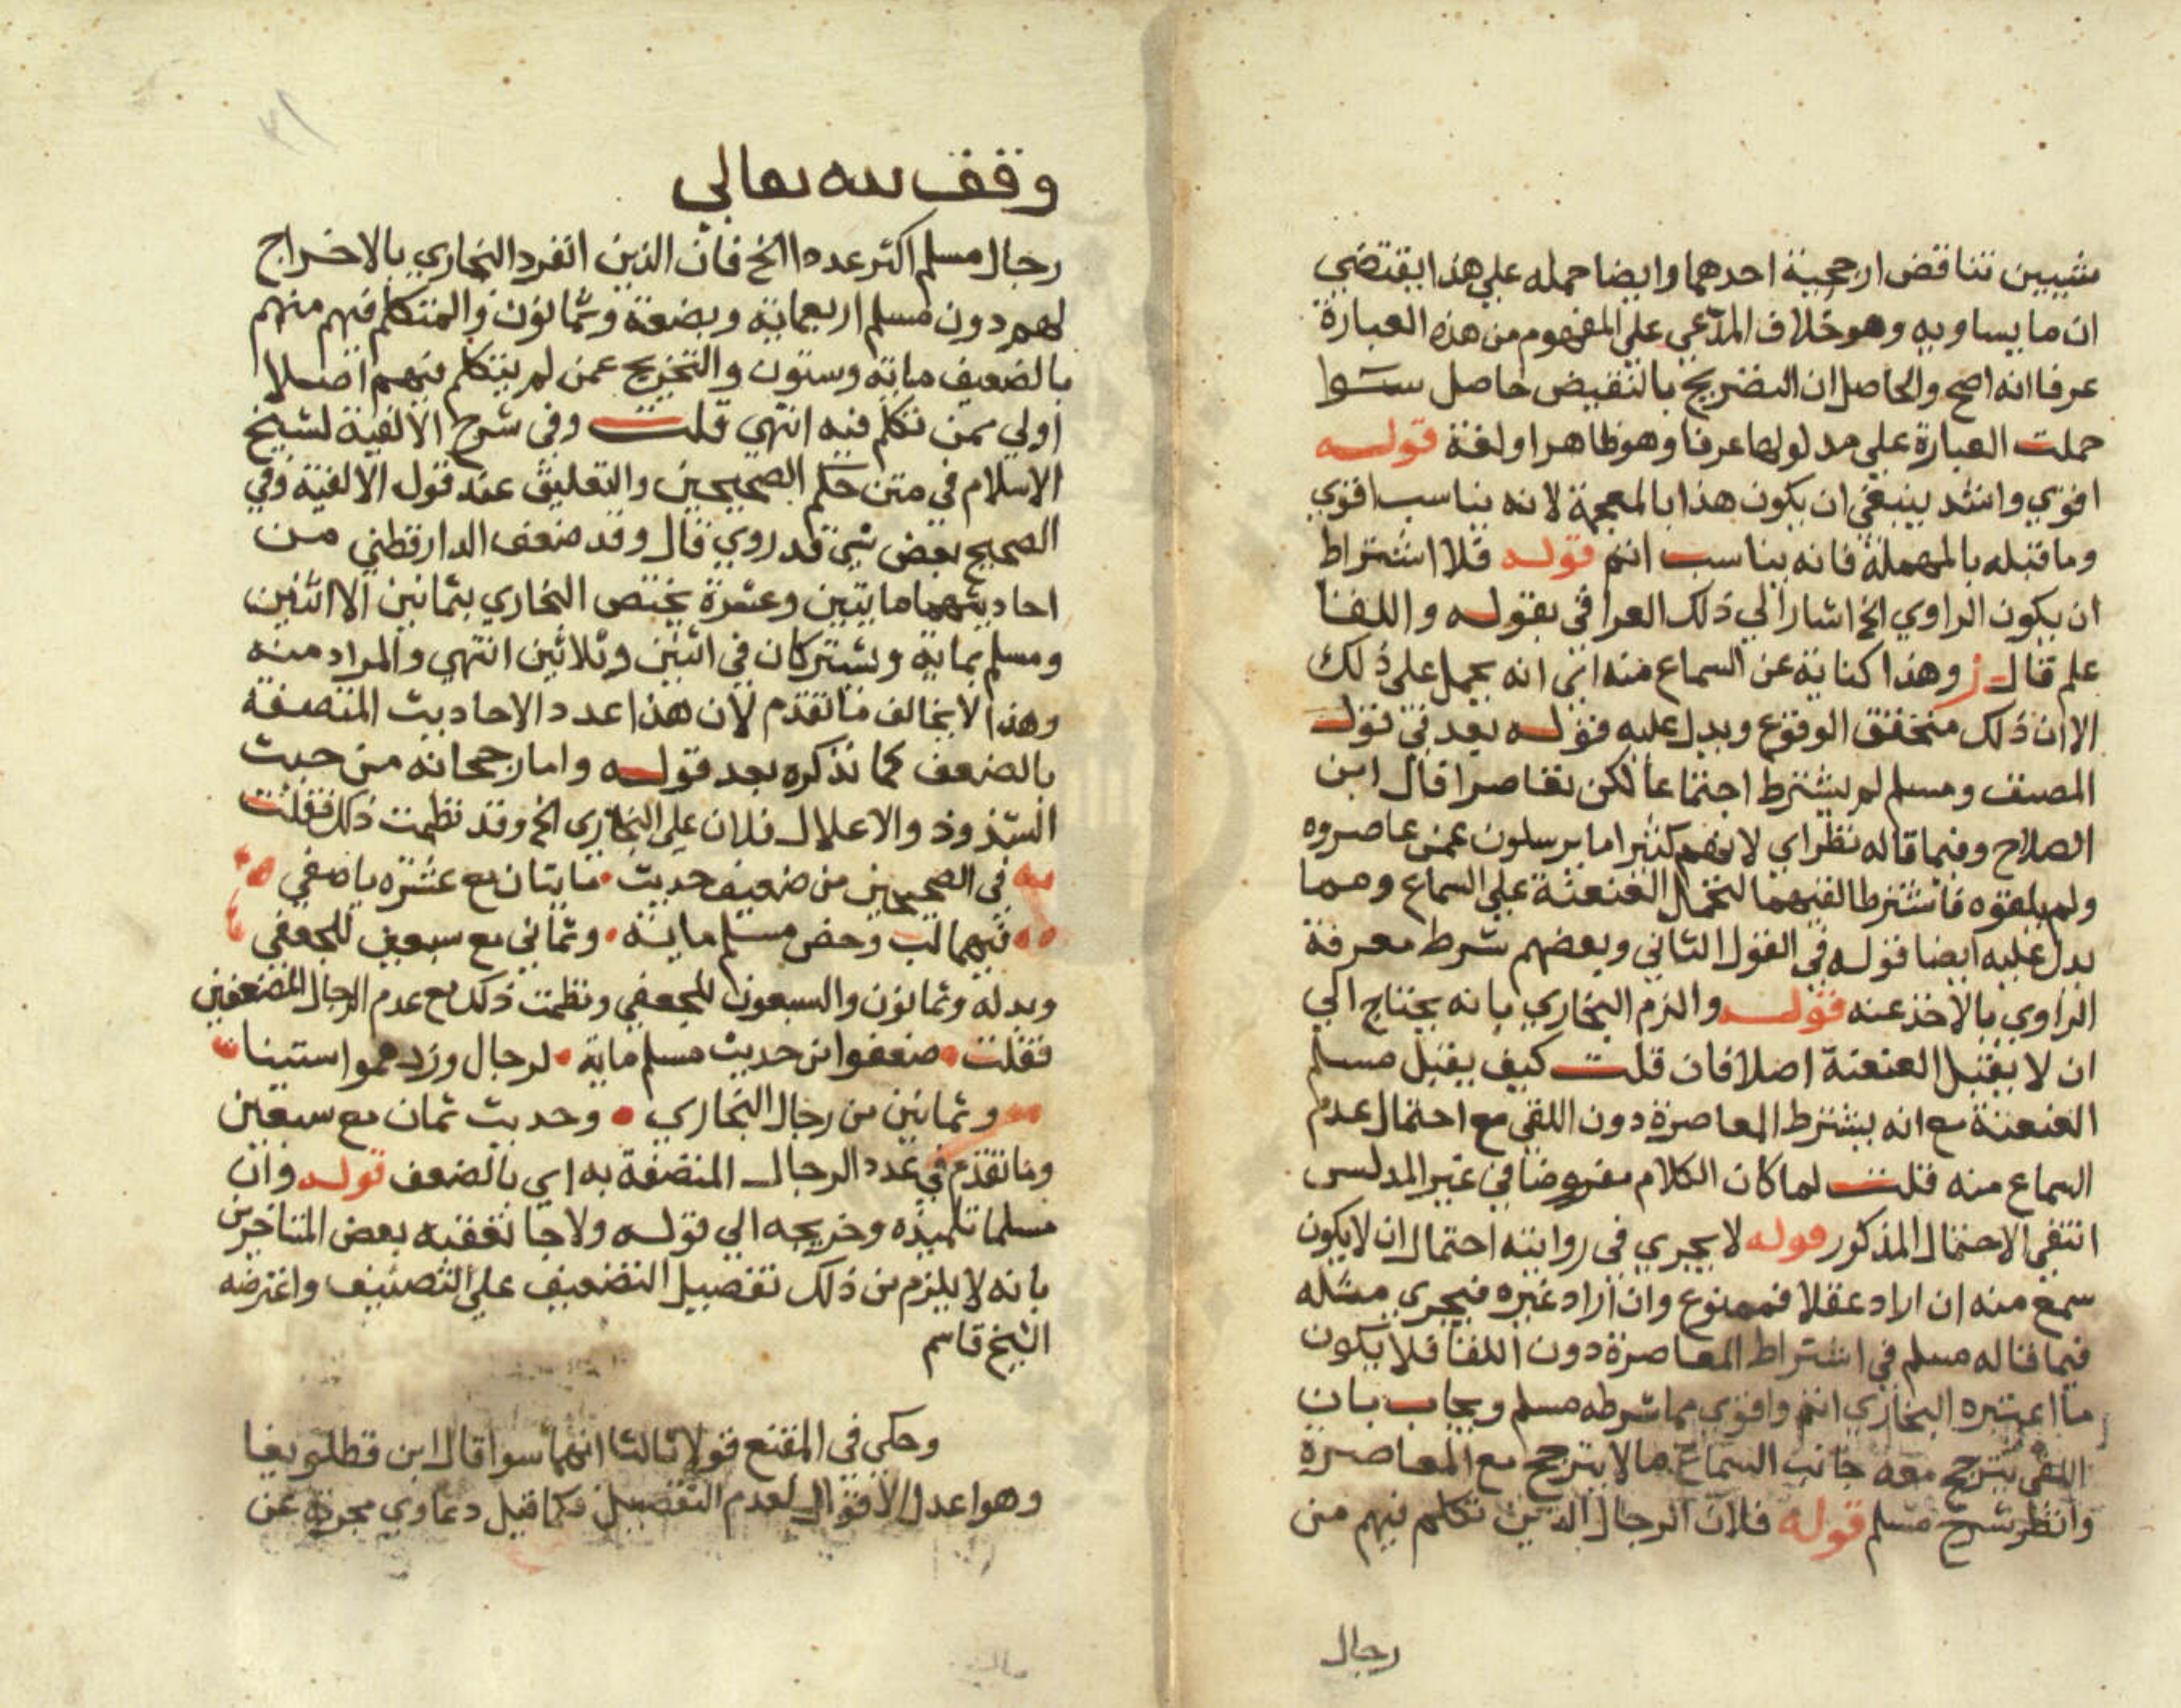 شيين تناقض ارجحية احدهما وايضا حمله علي هذا يقتضي
ان ما يساويه وهو خلاف المدعي علي المفهوم من هذه العبارة
عرفا انه اصح والحاصل ان التصريح بالنقيض حاصل سوا
حملت العبارة علي مدلولها عرفا وهو ظاهر او لغة قوله
اقوي واشد ينبغي ان يكون هذا بالمعجمة لانه يناسب اقوي
وما قبله بالمهملة فانه يناسب اتم قوله فلا اشتراط
ان يكون الراوي الخ اشار الي ذلك العراقي بقوله واللقا
علم قال ز وهذا كناية عن السماع منه اي انه يحمل علي ذلك
الا ان ذلك متحقق الوقوع ويدل عليه قوله بعد في قول
المصنف ومسلم لم يشترط اجتماعا لكن تعاصرا قال ابن
الصلاح وفيما قاله نظر اي لانهم كثيرا ما يرسلون عمن عاصروه
ولم يلقوه فاشترطا لقيهما لتحمل العنعنة علي السماع ومما
يدل عليه ايضا قوله في القول الثاني وبعضهم شرط معرفة
الراوي بالاخذ عنه قوله والزم البخاري بانه يحتاج الي
ان لا يقبل العنعنة اصلا فان قلت كيف يقبل مسلم
العنعنة مع انه يشترط المعاصرة دون اللقي مع احتمال عدم
السماع منه قلت لما كان الكلام مفروضا في غير المدلس
انتفي الاحتمال المذكور قوله لا يجري في روايته احتمال ان لا يكون
سمع منه ان اراد عقلا فممنوع وان اراد غيره فيجري مثله
فيما قاله مسلم في اشتراط المعاصرة دون اللقا فلا يكون
ما اعتبره البخاري اتم واقوي مما شرطه مسلم ويجاب بان
اللقي يترجح معه جانب السماع ما لا يترجح مع المعاصرة
وانظر شرح مسلم قوله فلان الرجال الذين تكلم فيهم من
رجال
وقف لله تعالي
رجال مسلم اكثر عددا الخ فان الذين انفرد البخاري بالاخراج
لهم دون مسلم اربعماية وبضعة وثمانون والمتكلم فيهم منهم
بالضعيف ماية وستون والتخريج عمن لم يتكلم فيهم اصلا
اولي ممن تكلم فيه انتهي قلت وفي شرح الالفية لشيخ
الاسلام في متن حكم الصحيحين والتعليق عند قول الالفية وفي
الصحيح بعض شي قد روي قال وقد ضعف الدارقطني من
احاديثهما مايتين وعشرة يختص البخاري بثمانين الا اثنين
ومسلم بماية ويشتركان في اثنين وثلاثين انتهي والمراد منه
وهذا لا يخالف ما تقدم لان هذا عدد الاحاديث المتصفة
بالضعف كما نذكره بعد قوله واما رجحانه من حيث
الشذوذ والاعلال فلان علي البخاري الخ وقد نظمت ذلك فقلت
في الصحيحين من ضعيف حديث مايتان مع عشره يا صفي
فيهما لب وخص مسلم ماية وثماني مع سبعين للجعفي
وبدله وثمانون والسبعون للجعفي ونظمت ذلك مع عدم الرجال المضعفين
فقلت ضعفوا من حديث مسلم ماية لرجال وزدهموا ستينا
وثمانين من رجال البخاري وحديث ثمان مع سبعين
وما تقدم في عدد الرجال المتصفة به اي بالضعف قوله وان
مسلما تلميذه وخريجه الي قوله ولا جا تعقبه بعض المتاخرين
بانه لا يلزم من ذلك تفضيل التضعيف علي التصنيف واعترضه
الشيخ قاسم
وحكي في المقنع قولا ثالثا انهما سوا قال ابن قطلوبغا
وهو اعدل الاقوال لعدم التفضيل فكما قيل دعاوي مجردة عن